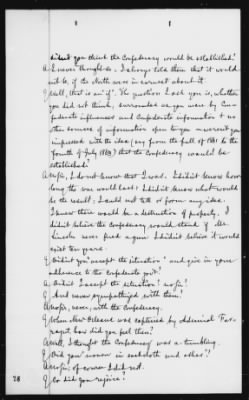 didnt you think the Confederacy would be established?
A. I never thought so. I always told them that it would
not be, if the North were in earnest about it.
Q. Well, that is an "if". The question I ask you is, whether
you did not think, surrounded as you were by Con-
federate influences and Confederate information & no
other sources of information open to you — werent you
impressed with the idea (say from the fall of 1861 to the
fourth of July 1863) that the Confederacy would be
established?
A. No sir, I do not know that I was. I didnt know how
long the war would last: I didnt know what would
be the result: I could not tell or form any idea.
I knew there would be a destruction of property. I
didnt believe the Confederacy would stand if Mr.
Lincoln never fired a gun. I didnt believe it would
exist ten years.
Q. Didnt you "accept the situation" and give in your
adherence to the Confederate govt?
A. Did I accept the situation? no sir!
Q. And never sympathized with them?
A. No sir, never, with the Confederacy.
Q. When New Orleans was captured by Admiral Far-
ragut how did you feel then?
A. Well, I thought the Confederacy was a tumbling.
Q. Did you mourn in sackcloth and ashes?
A. No sir, of course I did not.
Q. Or did you rejoice?
78